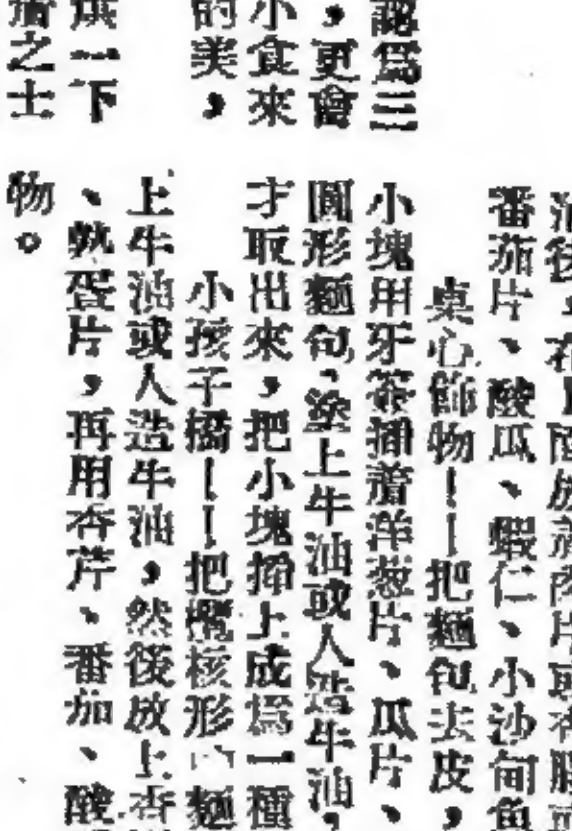 認爲三
，更會
小食來
的美，
烘一下
之士
油後，在上面放着肉片或腸或
番茄片、酸瓜、蝦仁、小沙甸魚
桌心飾物——把麵包去皮，
小塊用牙簽插着洋葱片、瓜片、
圓形麵包，塗上牛油或人造牛油，
才取出來，把小塊揷上成爲一種
小孩子橋——把欖核形的麵
上牛油或人造牛油，然後放上香
、熟蛋片，再用杏芹、番加、酸
物。